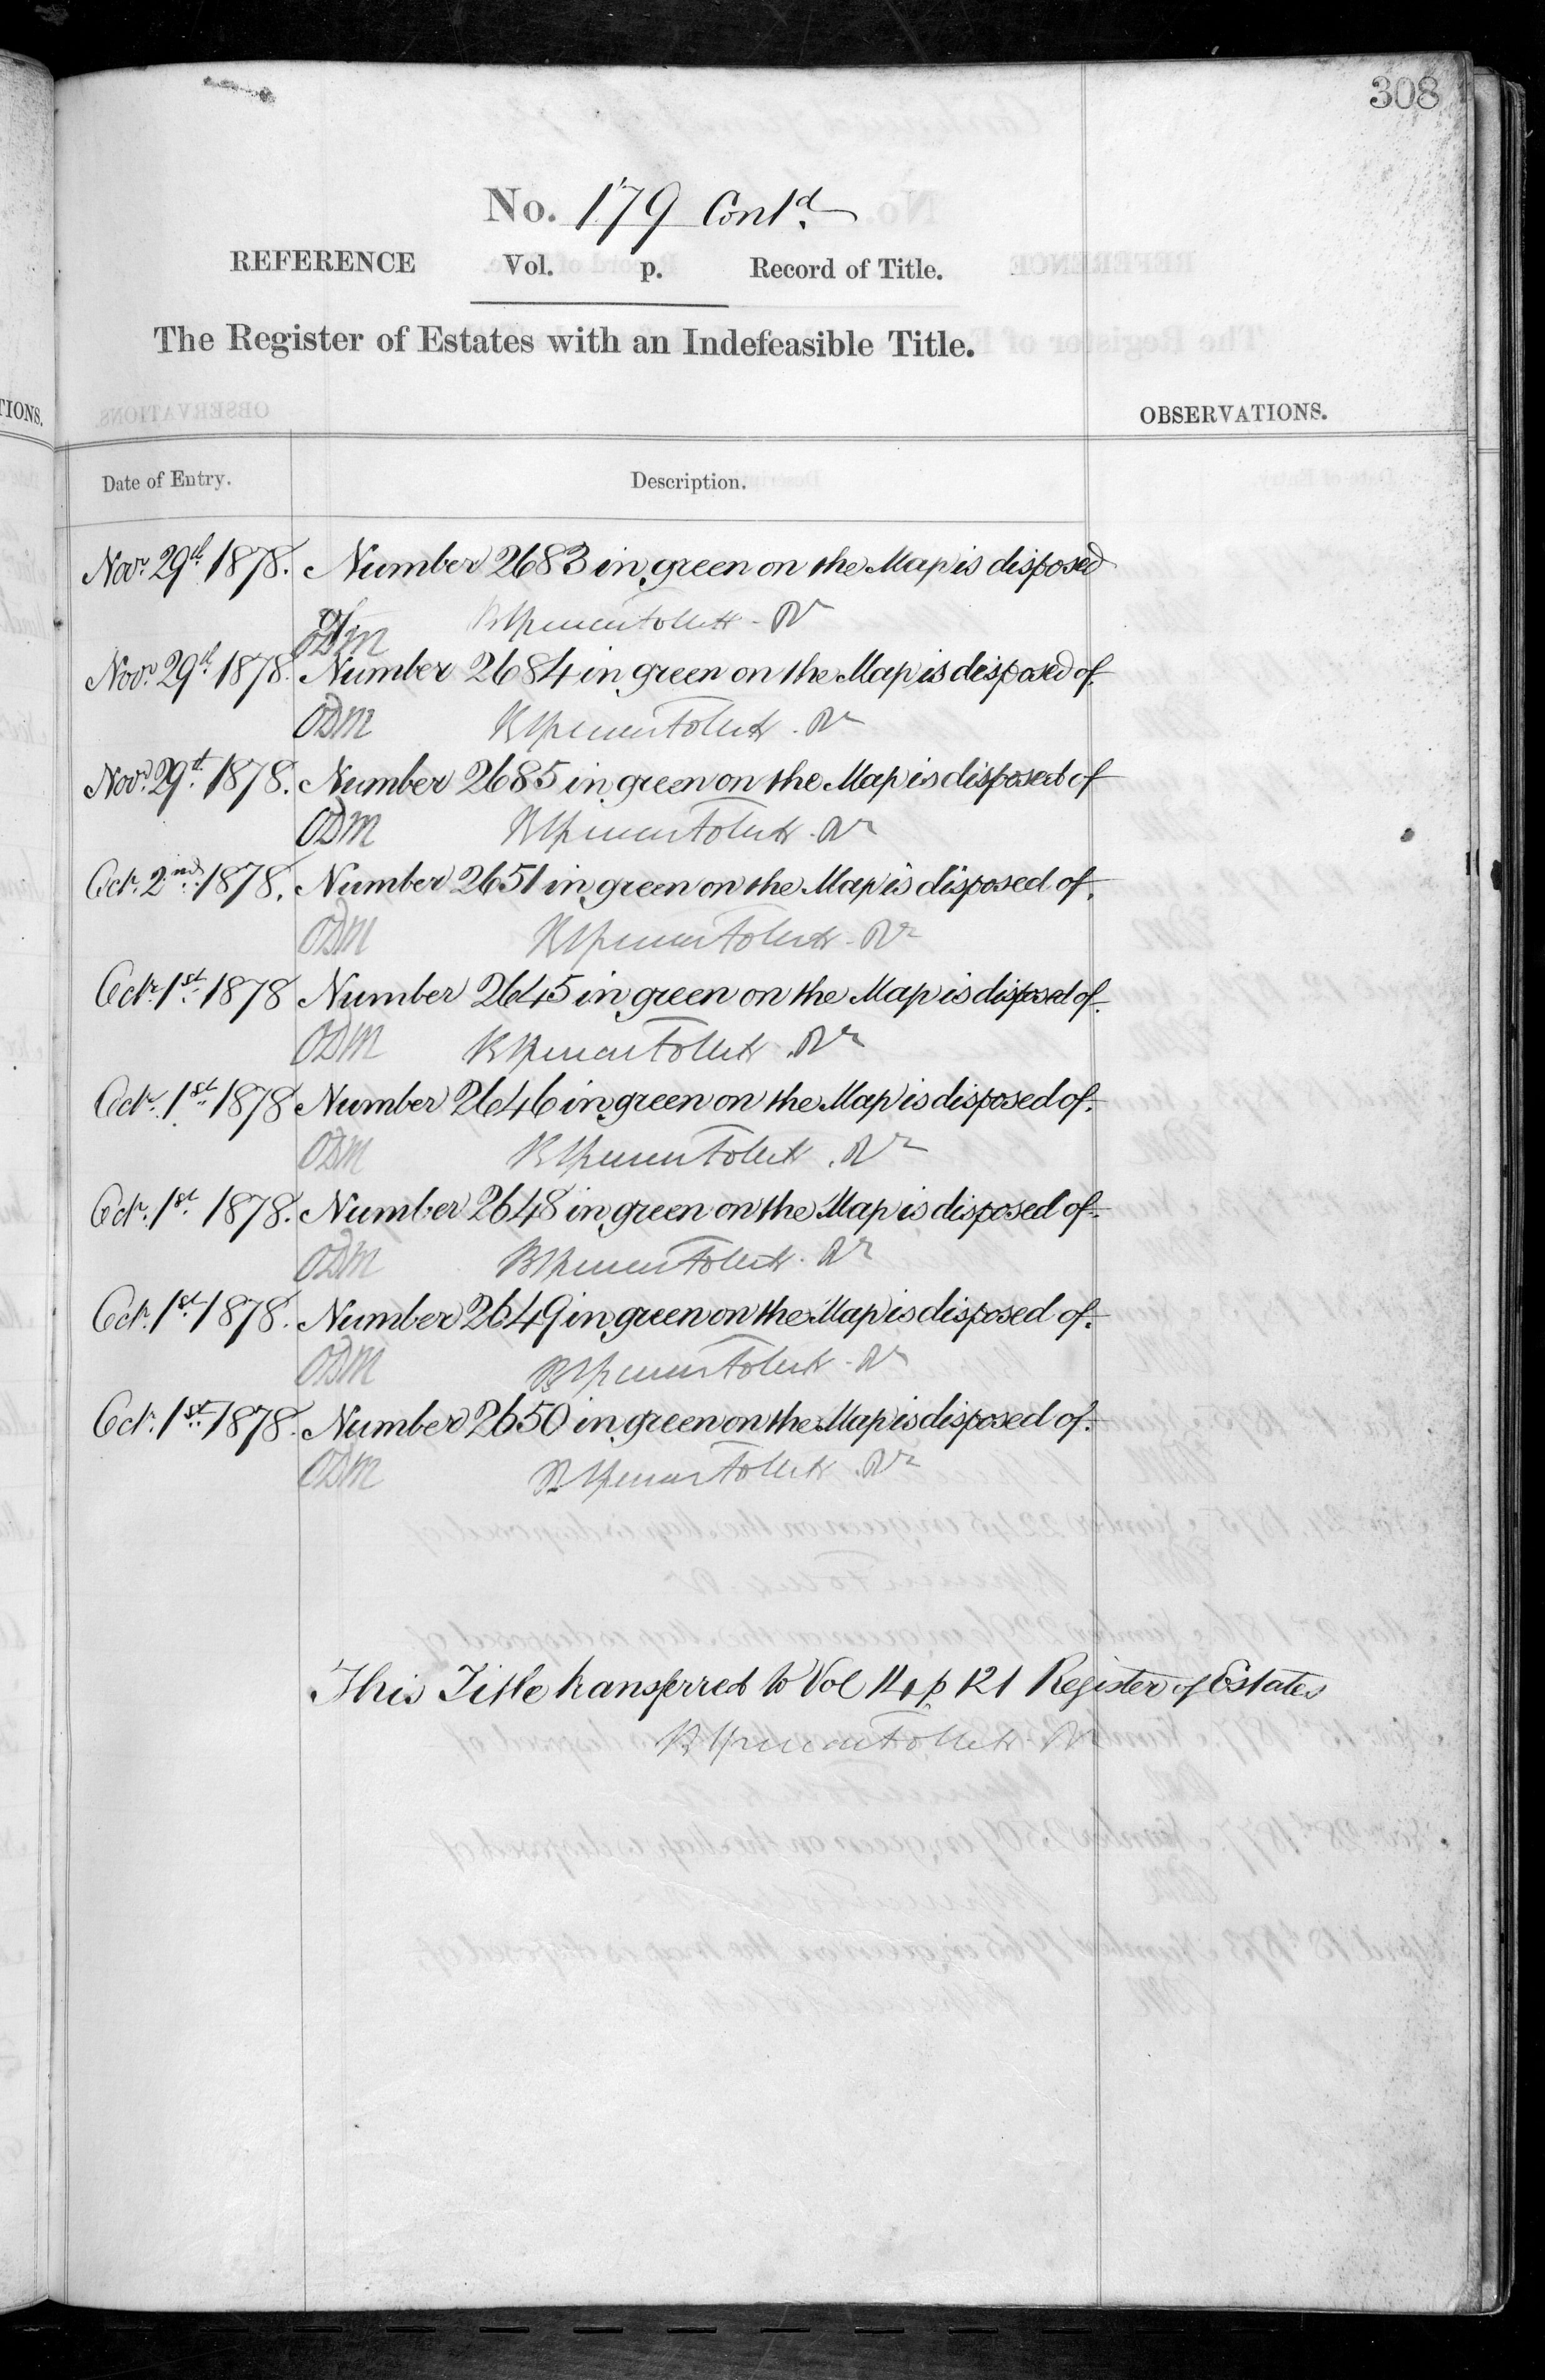 308
No. 179 Cont.d
REFERENCE Vol. p. Record of Title.
The Register of Estates with an Indefeasible Title.
TIONS.
OBSERVATIONS.
Date of Entry. Description.
Novr. 29th 1878. Number 2683 in green on the Map is disposed
of
ODM
Novr. 29th 1878. Number 2684 in green on the Map is disposed of.
ODM
Novr. 29th 1878. Number 2685 in green on the Map is disposed of
ODM
Octr. 2nd 1878. Number 2651 in green on the Map is disposed of.
ODM
Octr. 1st 1878 Number 2645 in green on the Map is disposed of.
ODM
Octr. 1st 1878 Number 2646 in green on the Map is disposed of.
ODM
Octr. 1st 1878. Number 2648 in green on the Map is disposed of.
ODM
Octr. 1st 1878. Number 2649 in green on the Map is disposed of.
ODM
Octr. 1st 1878. Number 2650 in green on the Map is disposed of.
ODM
This Title transferred to Vol 14 p 121 Register of Estates